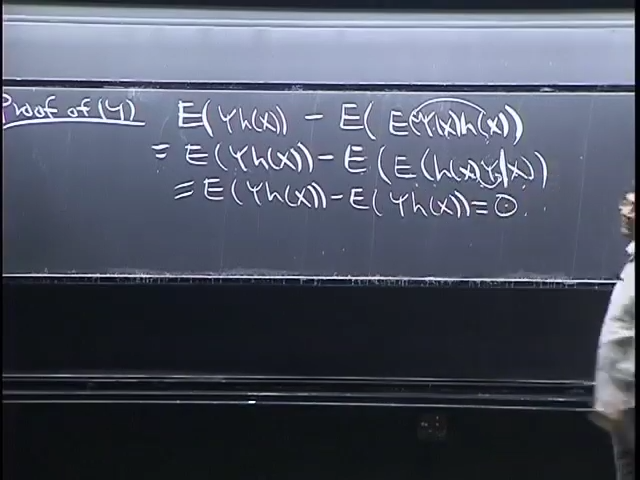 Proof of (4) E(Yh(X)) - E( E(Y|X)h(X))
= E(Yh(X)) - E (E(h(X)Y|X))
= E(Yh(X)) - E(Yh(X)) = 0.